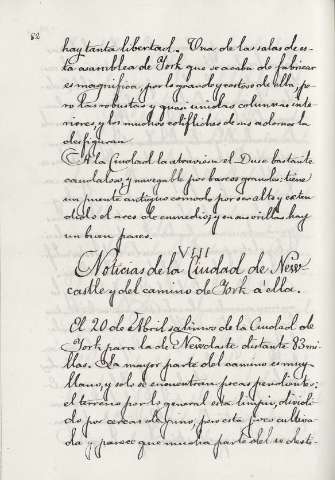 62
hay tanta libertad. Una de las salas de es-
ta asamblea de York que se acaba de fabricar
es magnifica, por lo grande y costoso de ella, pe-
ro las robustas y quasi unidas columnas inte-
riores, y los muchos colifliches de sus adornos la
desfiguran.
A la Ciudad la atraviesa el Duse bastante
caudaloso, y navegable por barcos grandes: tiene
un puente antiguo comodo por ser alto y esten
dido el arco de enmedio; y en sus orillas hay
un buen paseo.
VIII
Noticias de la Ciudad de New-
castle y del camino de York á ella.
El 20 de Abril salimos de la Ciudad de
York para la de Newclaste distante 83 mi-
llas. La mayor parte del camino es muy
llano, y solo se encuentran pocas pendientes:
el terreno por lo general esta limpio, dividi-
do por cercas de pino, pero esta poco cultiva-
da y parece que mucha parte del se desti-